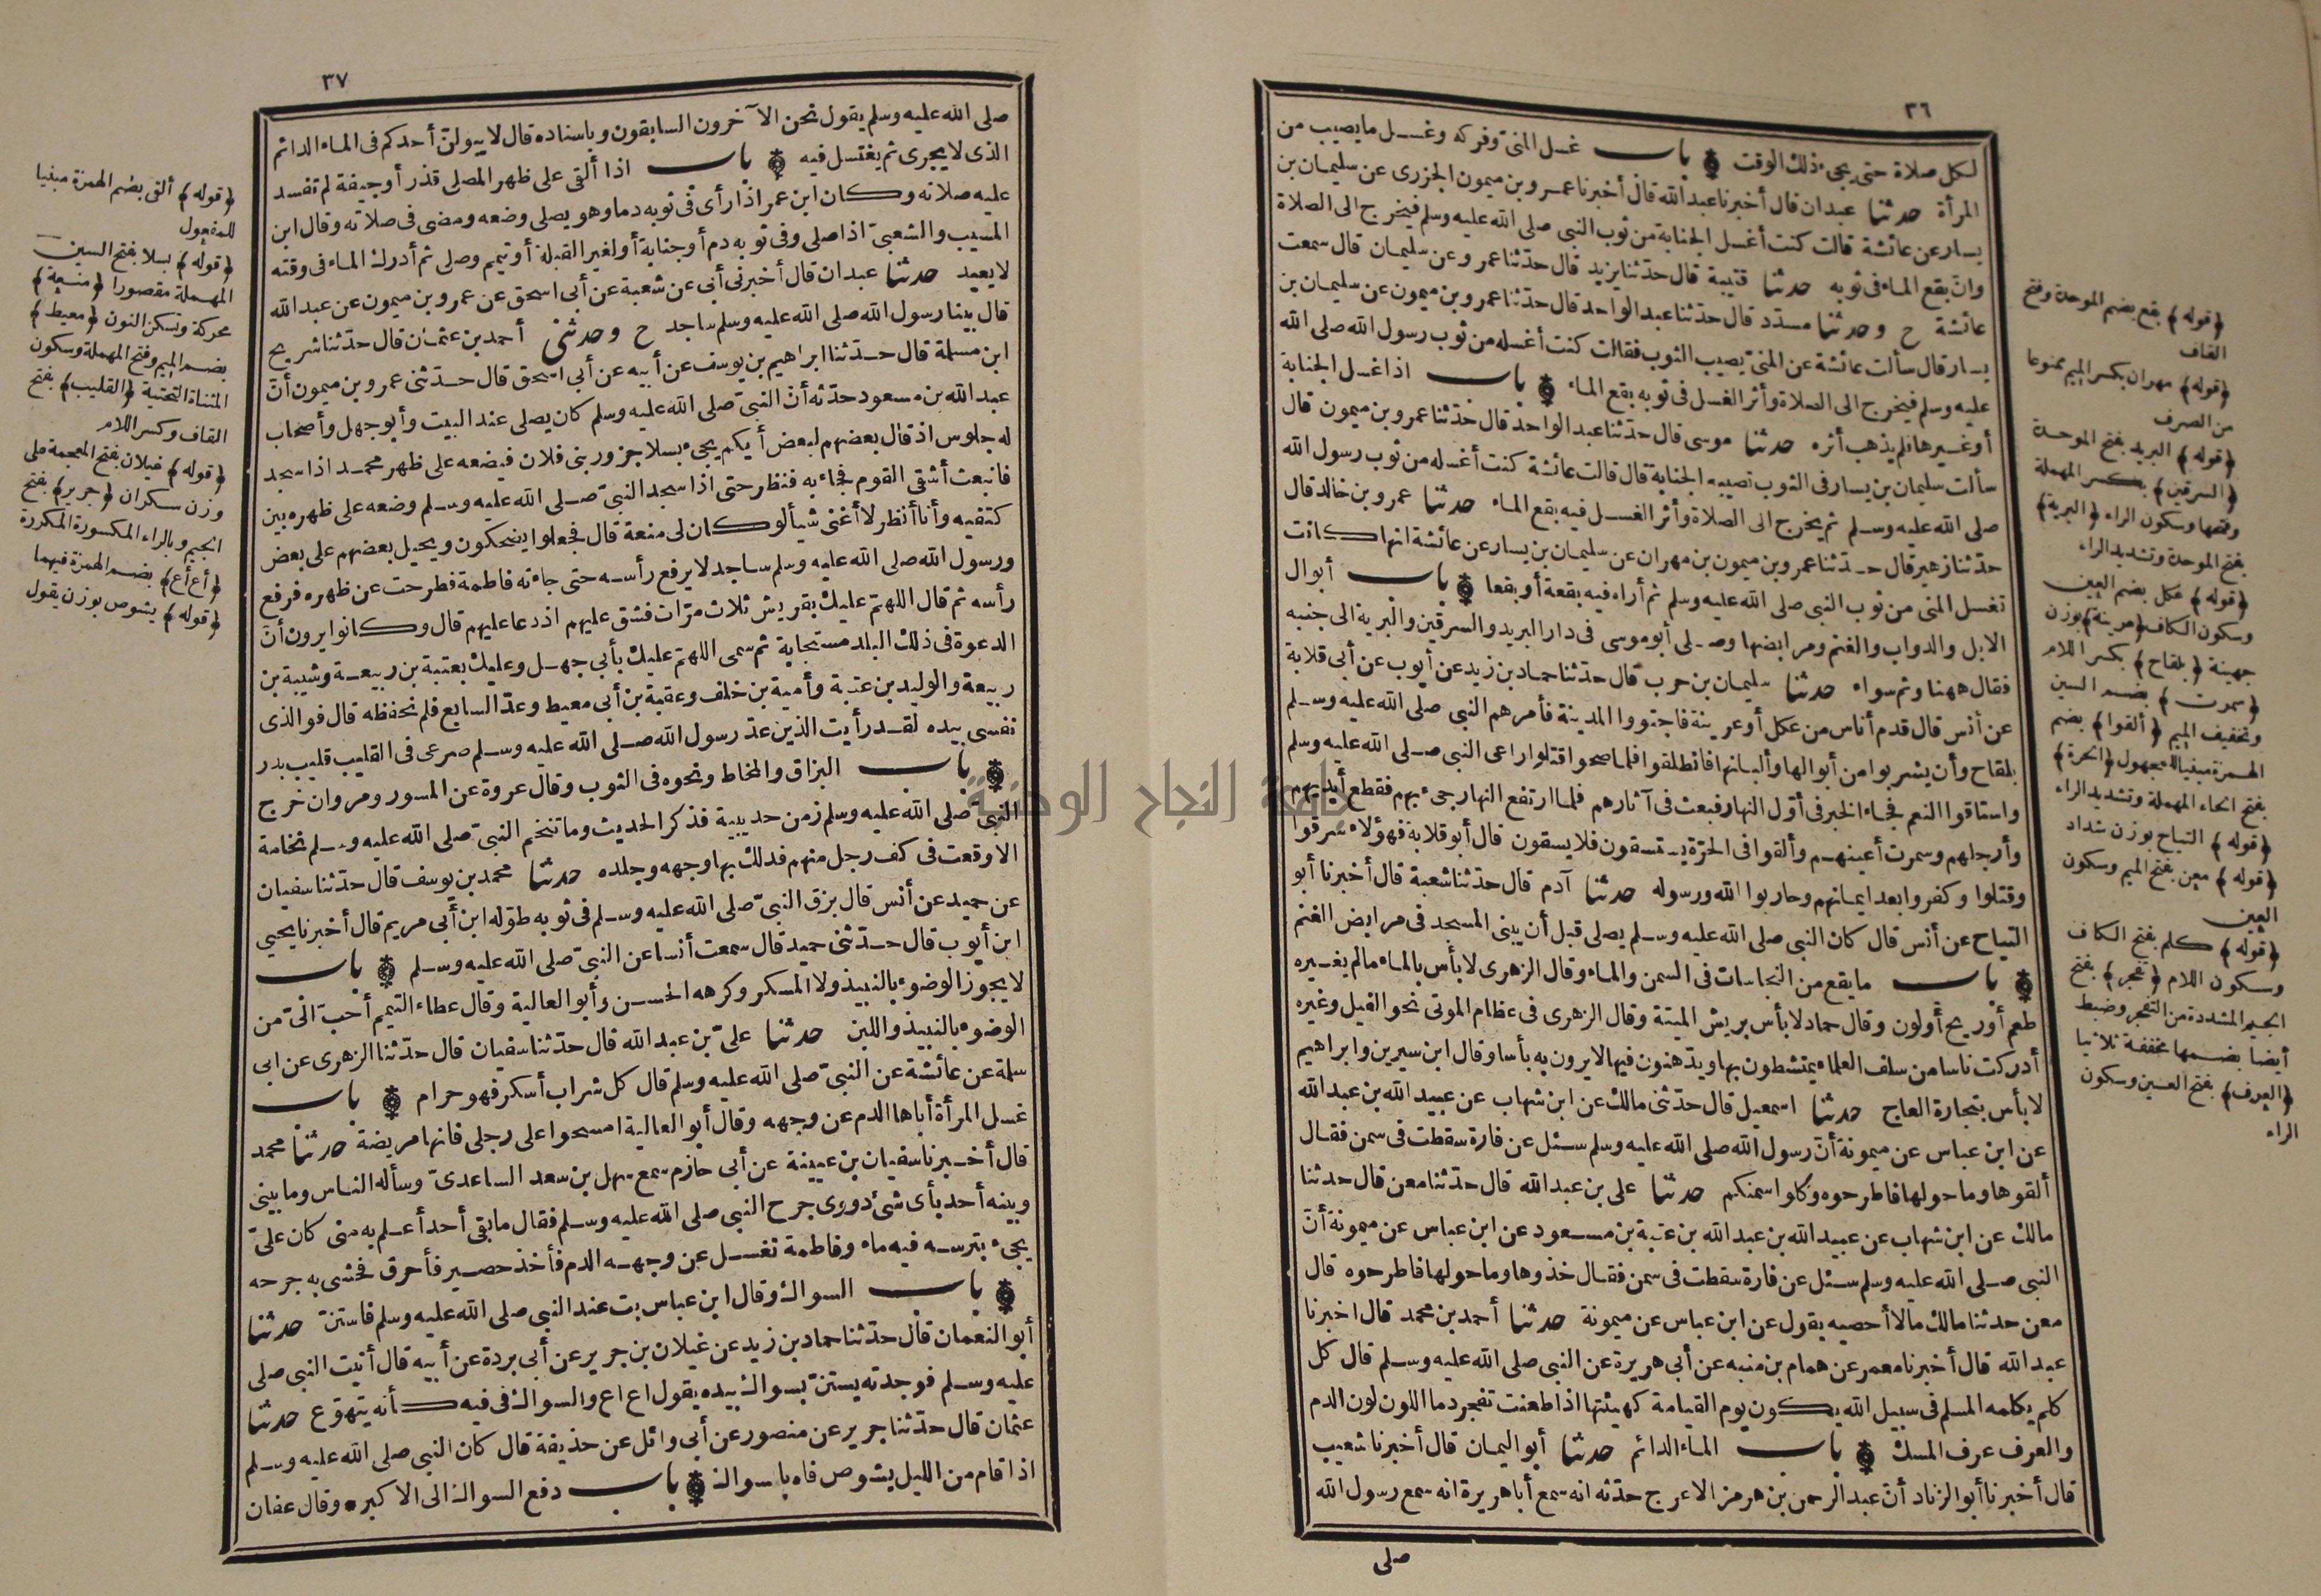 ٣٦
لكل صلاة حتى يجىء ذلك الوقت باب غسل المنىّ وفركه وغسل ما يصيب من
المرأة حدثنا عبدان قال أخبرنا عبد الله قال أخبرنا عمرو بن ميمون الجزرى عن سليمان بن
يسار عن عائشة قالت كنت أغسل الجنابة من ثوب النبى صلى الله عليه وسلم فيخرج الى الصلاة
وانّ بقع الماء فى ثوبه حدثنا قتيبة قال حدّثنا يزيد قال حدّثنا عمرو عن سليمان قال سمعت
عائشة ح وحدثنا مسدّد قال حدّثنا عبد الواحد قال حدّثنا عمرو بن ميمون عن سليمان بن
يسار قال سألت عائشة عن المنىّ يصيب الثوب فقالت كنت أغسله من ثوب رسول الله صلى الله
عليه وسلم فيخرج الى الصلاة وأثر الغسل فى ثوبه بقع الماء باب اذا غسل الجنابة
أو غيرها فلم يذهب أثره حدثنا موسى قال حدّثنا عبد الواحد قال حدّثنا عمرو بن ميمون قال
سألت سليمان بن يسار فى الثوب تصيبه الجنابة قال قالت عائشة كنت أغسله من ثوب رسول الله
صلى الله عليه وسلم ثم يخرج الى الصلاة وأثر الغسل فيه بقع الماء حدثنا عمرو بن خالد قال
حدّثنا زهير قال حدّثنا عمرو بن ميمون بن مهران عن سليمان بن يسار عن عائشة انها كانت
تغسل المنى من ثوب النبى صلى الله عليه وسلم ثم أراه فيه بقعة أو بقعا باب أبوال
الابل والدواب والغنم ومرابضها وصلى أبو موسى فى دار البريد والسرقين والبرية الى جنبه
فقال ههنا وثم سواء حدثنا سليمان بن حرب قال حدّثنا حماد بن زيد عن أيوب عن أبى قلابة
عن أنس قال قدم أناس من عكل أو عرينة فاجتووا المدينة فأمرهم النبى صلى الله عليه وسلم
بلقاح وأن يشربوا من أبوالها وألبانها فانطلقوا فلما صحوا قتلوا راعى النبى صلى الله عليه وسلم
واستاقوا النعم فجاء الخبر فى أوّل النهار فبعث فى آثارهم فلما ارتفع النهار جىء بهم فقطع أيديهم
وأرجلهم وسمرت أعينهم وألقوا فى الحرّة يستسقون فلا يسقون قال أبو قلابة فهؤلاء سرقوا
وقتلوا وكفروا بعد ايمانهم وحاربوا الله ورسوله حدثنا آدم قال حدّثنا شعبة قال أخبرنا أبو
التياح عن أنس قال كان النبى صلى الله عليه وسلم يصلى قبل أن يبنى المسجد فى مرابض الغنم
باب ما يقع من النجاسات فى السمن والماء وقال الزهرى لا بأس بالماء ما لم يغيره
طعم أو ريح أو لون وقال حماد لا بأس بريش الميتة وقال الزهرى فى عظام الموتى نحو الفيل وغيره
أدركت ناسا من سلف العلماء يمتشطون بها ويدّهنون فيها لا يرون به بأسا وقال ابن سيرين وابراهيم
لا بأس بتجارة العاج حدثنا اسمعيل قال حدّثنى مالك عن ابن شهاب عن عبيد الله بن عبد الله
عن ابن عباس عن ميمونة أنّ رسول الله صلى الله عليه وسلم سئل عن فارة سقطت فى سمن فقال
ألقوها وما حولها فاطرحوه وكلوا سمنكم حدثنا على بن عبد الله قال حدّثنا معن قال حدثنا
مالك عن ابن شهاب عن عبيد الله بن عبد الله بن عتبة بن مسعود عن ابن عباس عن ميمونة أنّ
النبى صلى الله عليه وسلم سئل عن فارة سقطت فى سمن فقال خذوها وما حولها فاطرحوه قال
معن حدثنا مالك مالا أحصيه يقول عن ابن عباس عن ميمونة حدثنا أحمد بن محمد قال اخبرنا
عبد الله قال أخبرنا معمر عن همام بن منبه عن أبى هريرة عن النبى صلى الله عليه وسلم قال كل
كلم يكلمه المسلم فى سبيل الله يكون يوم القيامة كهيئتها اذا طعنت تفجر دما اللون لون الدم
والعرف عرف المسك باب الماء الدائم حدثنا أبو اليمان قال أخبرنا شعيب
قال أخبرنا أبو الزناد أنّ عبد الرحمن بن هرمز الاعرج حدّثه انه سمع أبا هريرة انه سمع رسول الله
صلى
﴿قوله﴾ بقع بضم الموحدة وفتح
القاف
﴿قوله﴾ مهران بكسر الميم ممنوعا
من الصرف
﴿قوله﴾ البريد بفتح الموحدة
﴿السرقين﴾ بكسر المهملة
وفتحها وسكون الراء ﴿البرية﴾
بفتح الموحدة وتشديد الراء
﴿قوله﴾ عكل بضم العين
وسكون الكاف ﴿عرينة﴾ بوزن
جهينة ﴿بلقاح﴾ بكسر اللام
﴿سمرت﴾ بضم السين
وتخفيف الميم ﴿ألقوا﴾ بضم
الهمزة مبنيا للمجهول ﴿الحرة﴾
بفتح الحاء المهملة وتشديد الراء
﴿قوله﴾ التياح بوزن شداد
﴿قوله﴾ معن بفتح الميم وسكون
العين
﴿قوله﴾ كلم بفتح الكاف
وسكون اللام ﴿تفجر﴾ بفتح
الجيم المشددة من التفجر وضبط
أيضا بضمها مخففة ثلاثيا
﴿العرف﴾ بفتح العين وسكون
الراء
٣٧
صلى الله عليه وسلم يقول نحن الآخرون السابقون وباسناده قال لا يبولنّ أحدكم فى الماء الدائم
الذى لا يجرى ثم يغتسل فيه باب اذا ألقى على ظهر المصلى قذر أو جيفة لم تفسد
عليه صلاته وكان ابن عمر اذا رأى فى ثوبه دما وهو يصلى وضعه ومضى فى صلاته وقال ابن
المسيب والشعبىّ اذا صلى وفى ثوبه دم أو جنابة أو لغير القبلة أو تيمم وصلى ثم أدرك الماء فى وقته
لا يعيد حدثنا عبدان قال أخبرنى أبى عن شعبة عن أبى اسحق عن عمرو بن ميمون عن عبد الله
قال بينا رسول الله صلى الله عليه وسلم ساجد ح وحدثنى أحمد بن عثمان قال حدّثنا شريح
ابن مسلمة قال حدّثنا ابراهيم بن يوسف عن أبيه عن أبى اسحق قال حدّثنى عمرو بن ميمون أنّ
عبد الله بن مسعود حدّثه أنّ النبىّ صلى الله عليه وسلم كان يصلى عند البيت وأبو جهل وأصحاب
له جلوس اذ قال بعضهم لبعض أيكم يجىء بسلا جزور بنى فلان فيضعه على ظهر محمد اذا سجد
فانبعث أشقى القوم فجاء به فنظر حتى اذا سجد النبىّ صلى الله عليه وسلم وضعه على ظهره بين
كتفيه وأنا أنظر لا أغنى شيأ لو كان لى منعة قال فجعلوا يضحكون ويحيل بعضهم على بعض
ورسول الله صلى الله عليه وسلم ساجد لا يرفع رأسه حتى جاءته فاطمة فطرحت عن ظهره فرفع
رأسه ثم قال اللهمّ عليك بقريش ثلاث مرّات فشق عليهم اذ دعا عليهم قال وكانوا يرون أنّ
الدعوة فى ذلك البلد مستجابة ثم سمى اللهمّ عليك بأبى جهل وعليك بعتبة بن ربيعة وشيبة بن
ربيعة والوليد بن عتبة وأمية بن خلف وعقبة بن أبى معيط وعدّ السابع فلم نحفظه قال فوالذى
نفسى بيده لقد رأيت الذين عدّ رسول الله صلى الله عليه وسلم صرعى فى القليب قليب بدر
باب البزاق والمخاط ونحوه فى الثوب وقال عروة عن المسور ومروان خرج
النبىّ صلى الله عليه وسلم زمن حديبية فذكر الحديث وما تنخم النبىّ صلى الله عليه وسلم نخامة
الا وقعت فى كف رجل منهم فدلك بها وجهه وجلده حدثنا محمد بن يوسف قال حدّثنا سفيان
عن حميد عن أنس قال بزق النبىّ صلى الله عليه وسلم فى ثوبه طوّله ابن أبى مريم قال أخبرنا يحيى
ابن أيوب قال حدّثنى حميد قال سمعت أنسا عن النبىّ صلى الله عليه وسلم باب
لا يجوز الوضوء بالنبيذ ولا المسكر وكرهه الحسن وأبو العالية وقال عطاء التيمم أحبّ الىّ من
الوضوء بالنبيذ واللبن حدثنا علىّ بن عبد الله قال حدّثنا سفيان قال حدّثنا الزهرى عن ابى
سلمة عن عائشة عن النبىّ صلى الله عليه وسلم قال كل شراب أسكر فهو حرام باب
غسل المرأة أباها الدم عن وجهه وقال أبو العالية امسحوا على رجلى فانها مريضة حدثنا محمد
قال أخبرنا سفيان بن عيينة عن أبى حازم سمع سهل بن سعد الساعدىّ وسأله الناس وما بينى
وبينه أحد بأى شئ دووى جرح النبى صلى الله عليه وسلم فقال ما بقى أحد أعلم به منى كان علىّ
يجىء بترسه فيه ماء وفاطمة تغسل عن وجهه الدم فأخذ حصير فأحرق فحشى به جرحه
باب السواك وقال ابن عباس بت عند النبى صلى الله عليه وسلم فاستنّ حدثنا
أبو النعمان قال حدّثنا حماد بن زيد عن غيلان بن جرير عن أبى بردة عن أبيه قال أتيت النبى صلى
عليه وسلم فوجدته يستنّ بسواك بيده يقول اع اع والسواك فى فيه كأنه يتهوّع حدثنا
عثمان قال حدّثنا جرير عن منصور عن أبى وائل عن حذيفة قال كان النبى صلى الله عليه وسلم
اذا قام من الليل يشوص فاه بالسواك باب دفع السواك الى الاكبر وقال عفان
﴿قوله﴾ ألقى بضم الهمزة مبنيا
للمفعول
﴿قوله﴾ بسلا بفتح السين
المهملة مقصورا ﴿منعة﴾
محركة وتسكن النون ﴿معيط﴾
بضم الميم وفتح المهملة وسكون
المثناة التحتية ﴿القليب﴾ بفتح
القاف وكسر اللام
﴿قوله﴾ غيلان بفتح المعجمة على
وزن سكران ﴿جرير﴾ بفتح
الجيم وبالراء المكسورة المكررة
﴿أع أع﴾ بضم الهمزة فيهما
﴿قوله﴾ يشوص بوزن يقول
جامعة النجاح الوطنية